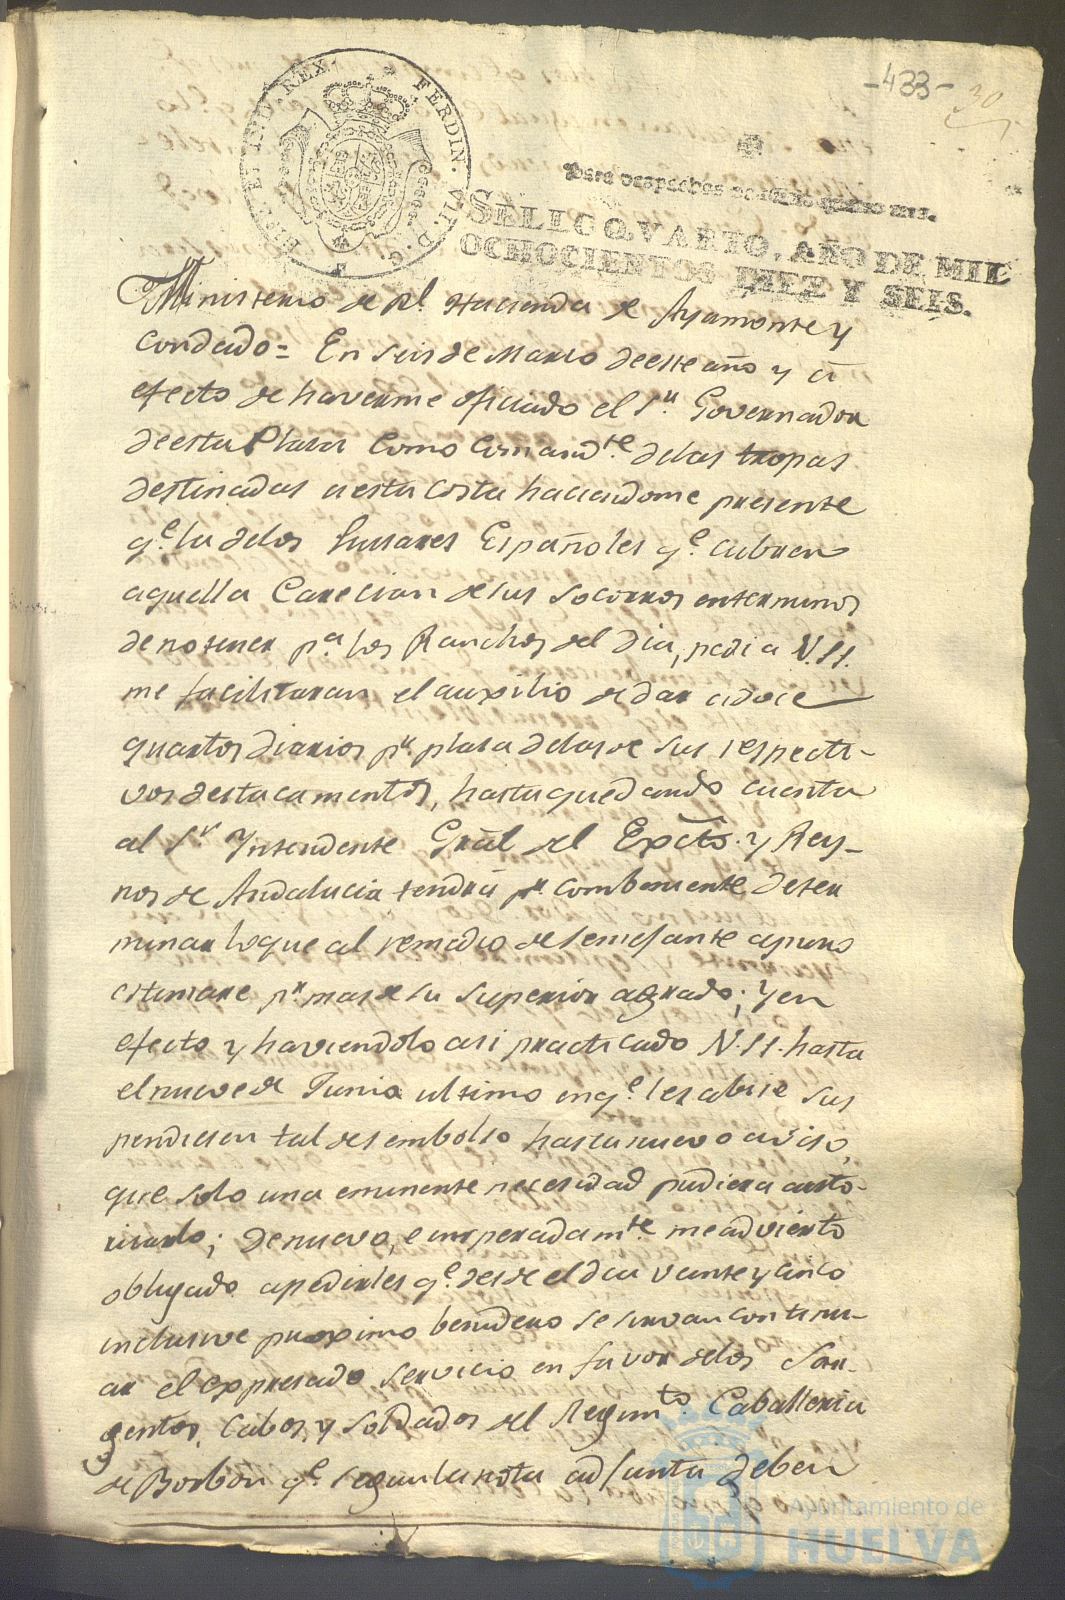 -433-
30
FERDIN. VII. D. G. HISP. ET IND. REX.
Para despachos de oficio quatro mrs.
SELLO QVARTO, AÑO DE MIL
OCHOCIENTOS DIEZ Y SEIS.
Ministerio de Rl. Hacienda de Ayamonte y
Condado = En seis de Marzo de este año y a
efecto de haverme oficiado el Sr. Governador
de esta Plaza como Comandte. de las tropas
destinadas a esta costa haciendome presente
qe. la de los Hussares Españoles qe. cubren
aquella carecian de sus socorros en terminos
de no tener pa. los Ranchos del dia, pedi a V.SS.
me facilitaran el auxilio de dar a doce
quartos diarios pr. plaza de las de sus respecti-
vos destacamentos, hasta que dando cuenta
al Sr. Yntendente Gral del Exto. y Rey-
nos de Andalucia tendra pr. combeniente deter
minar lo que al remedio de semejante apuro
estimare pr. mas de su superior agrado; y en
efecto y haviendolo asi practicado V.SS. hasta
el nueve de Junio ultimo en qe. les abise sus
pendiesen tal desembolso hasta nuevo aviso,
que solo una eminente necesidad pudiera auto-
rizarlo; de nuevo, e inesperadamte. me advierto
obligado a pedirles qe. desde el dia veinte y cinco
inclusive proximo benidero se sirvan continu-
ar el expresado servicio en favor de los Sar-
gentos, Cabos, y Soldados del Regimto. Caballeria
de Borbon qe. segun la nota adjunta deben
Ayuntamiento de
HUELVA